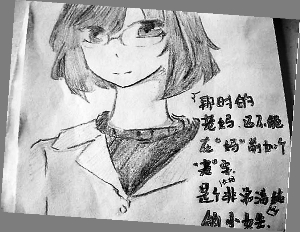 「那时的
老妈,还不能
在“妈”前加个
“老”字.
是个非常清纯
的小女生.